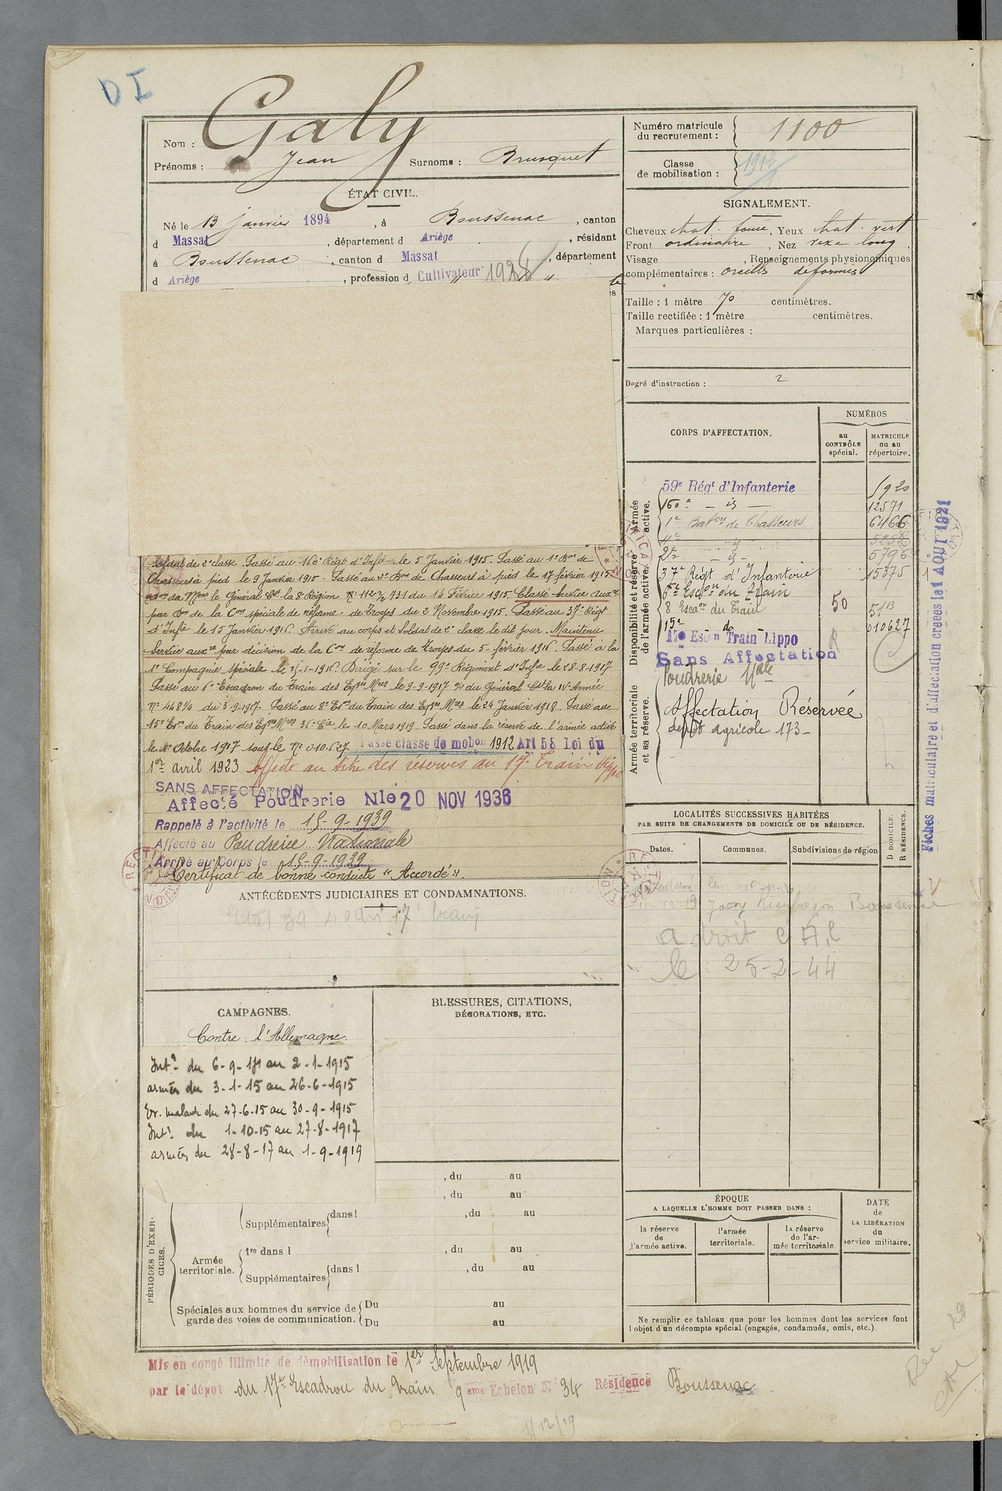 D I
Nom : Galy
Prénoms : Jean Surnoms : Brusquet
ÉTAT CIVIL.
Né le 13 janvier 1894, à Boussenac, canton
d Massat, département d Ariège, résidant
à Boussenac, canton d Massat, département
d Ariège, profession d Cultivateur 1924
Numéro matricule du recrutement : 1100
Classe de mobilisation : 1912
SIGNALEMENT.
Cheveux chat. foncé, Yeux chat. vert
Front ordinaire, Nez long,
Visage , Renseignements physionomiques
complémentaires : oreilles déformées
Taille : 1 mètre 70 centimètres.
Taille rectifiée : 1 mètre centimètres.
Marques particulières :
Degré d'instruction : 2
CORPS D'AFFECTATION.
NUMÉROS
au CONTRÔLE spécial.
MATRICULE ou au répertoire.
Armée active.
59e Régt d'Infanterie 1920
160e - id - 12571
1er Baton de Chasseurs 6466
Disponibilité et réserve de l'armée active.
2e - 5796
37e Régt d'Infanterie 15375
6e Escon du Train
8 Escon du Train 50
15e do 010627
17e Eson Train Hippo
Sans Affectation
Poudrerie Nale
Armée territoriale et sa réserve.
Affectation Réservée
dépôt agricole 173-
Soldat de 2e classe. Passé au 160e Régt d'Infie le 5 Janvier 1915. Passé au 1er Bon de
Chasseurs à pied le 9 Janvier 1915. Passé au 2e Bon de Chasseurs à pied le 17 février 1915
le Général Ct la 8e Région No 112 7/ 931 du 14 Février 1915. Classé Service Auxre
par Don de la Con spéciale de réforme de Troyes du 2 Novembre 1915. Passé au 37e Régt
d'Infie le 15 Janvier 1916. Arrivé au corps et Soldat de 2e classe le dit jour. Maintenu
Service auxre par décision de la Con de réforme de Troyes du 5 février 1916. Passé à la
1e Compagnie Spéciale le Dirigé sur le 99e Régiment d'Infie le 28-8-1917
Passé au 6e Escadron du Train des Eqges Mres le 9-9-1917 du Général Ct la IVe Armée
No 4484 du 3-9-1917. Passé au 8e Eon du Train des Eqges Mres le 24 Janvier 1918. Passé au
15e Eon du Train des Eqges Mres 36e Cie le 10 Mars 1919. Passé dans la réserve de l'armée active
le 1er Octobre 1917 sous le No 010.627. Passé classe de mobon 1912 Art 58 Loi du
1er avril 1923 Affecté au titre des réserves au 17e Train Hippo
SANS AFFECTATION
Affecté Poudrerie Nle 20 NOV 1936
Rappelé à l'activité le 15-9-1939
Affecté au Poudrerie Nationale
Arrivé au Corps le 15-9-1939
Certificat de bonne conduite "Accordé".
ANTÉCÉDENTS JUDICIAIRES ET CONDAMNATIONS.
LOCALITÉS SUCCESSIVES HABITÉES
PAR SUITE DE CHANGEMENTS DE DOMICILE OU DE RÉSIDENCE.
Dates. Communes. Subdivisions de région
D DOMICILE.
R RÉSIDENCE.
a droit C A C
le : 25-2-44
Fiches matriculaire et d'affectation créées le 1 AOUT 1921
CAMPAGNES.
Contre l'Allemagne.
Intr du 6-9-14 au 2-1-1915
armées du 3-1-15 au 26-6-1915
Ev. malade du 27-6-15 au 30-9-1915
Intr du 1-10-15 au 27-8-1917
armées du 28-8-17 au 1-9-1919
BLESSURES, CITATIONS,
DÉCORATIONS, ETC.
, du au
, du au
PÉRIODES D'EXERCICES.
Supplémentaires dans l , du au
Armée territoriale.
1re dans l , du au
Supplémentaires dans l , du au
Spéciales aux hommes du service de garde des voies de communication.
Du au
Du au
ÉPOQUE
A LAQUELLE L'HOMME DOIT PASSER DANS :
la réserve de l'armée active.
l'armée territoriale.
la réserve de l'armée territoriale.
DATE de LA LIBÉRATION du service militaire.
Ne remplir ce tableau que pour les hommes dont les services font
l'objet d'un décompte spécial (engagés, condamnés, omis, etc.).
Mis en congé illimité de démobilisation le 1er Septembre 1919
par le dépôt du 17e Escadron du Train 9eme Echelon N° 34 Résidence Boussenac
1/12/19